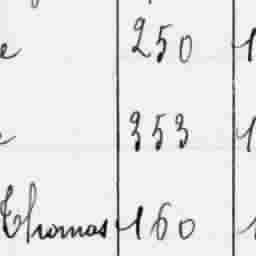 e 250 1
e 353 1
Thomas 160 1